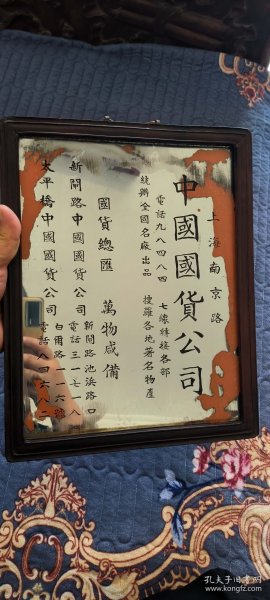 上海南京路
中國國貨公司
電話九八四八四 七線轉接各部
統辦全國名廠出品 搜羅各地著名物產
國貨總匯 萬物咸備
新閘路中國國貨公司 新閘路池浜路口 電話三一七一八
太平橋中國國貨公司 白爾路一一六號 電話八四六八二
孔夫子旧书网
www.kongfz.com